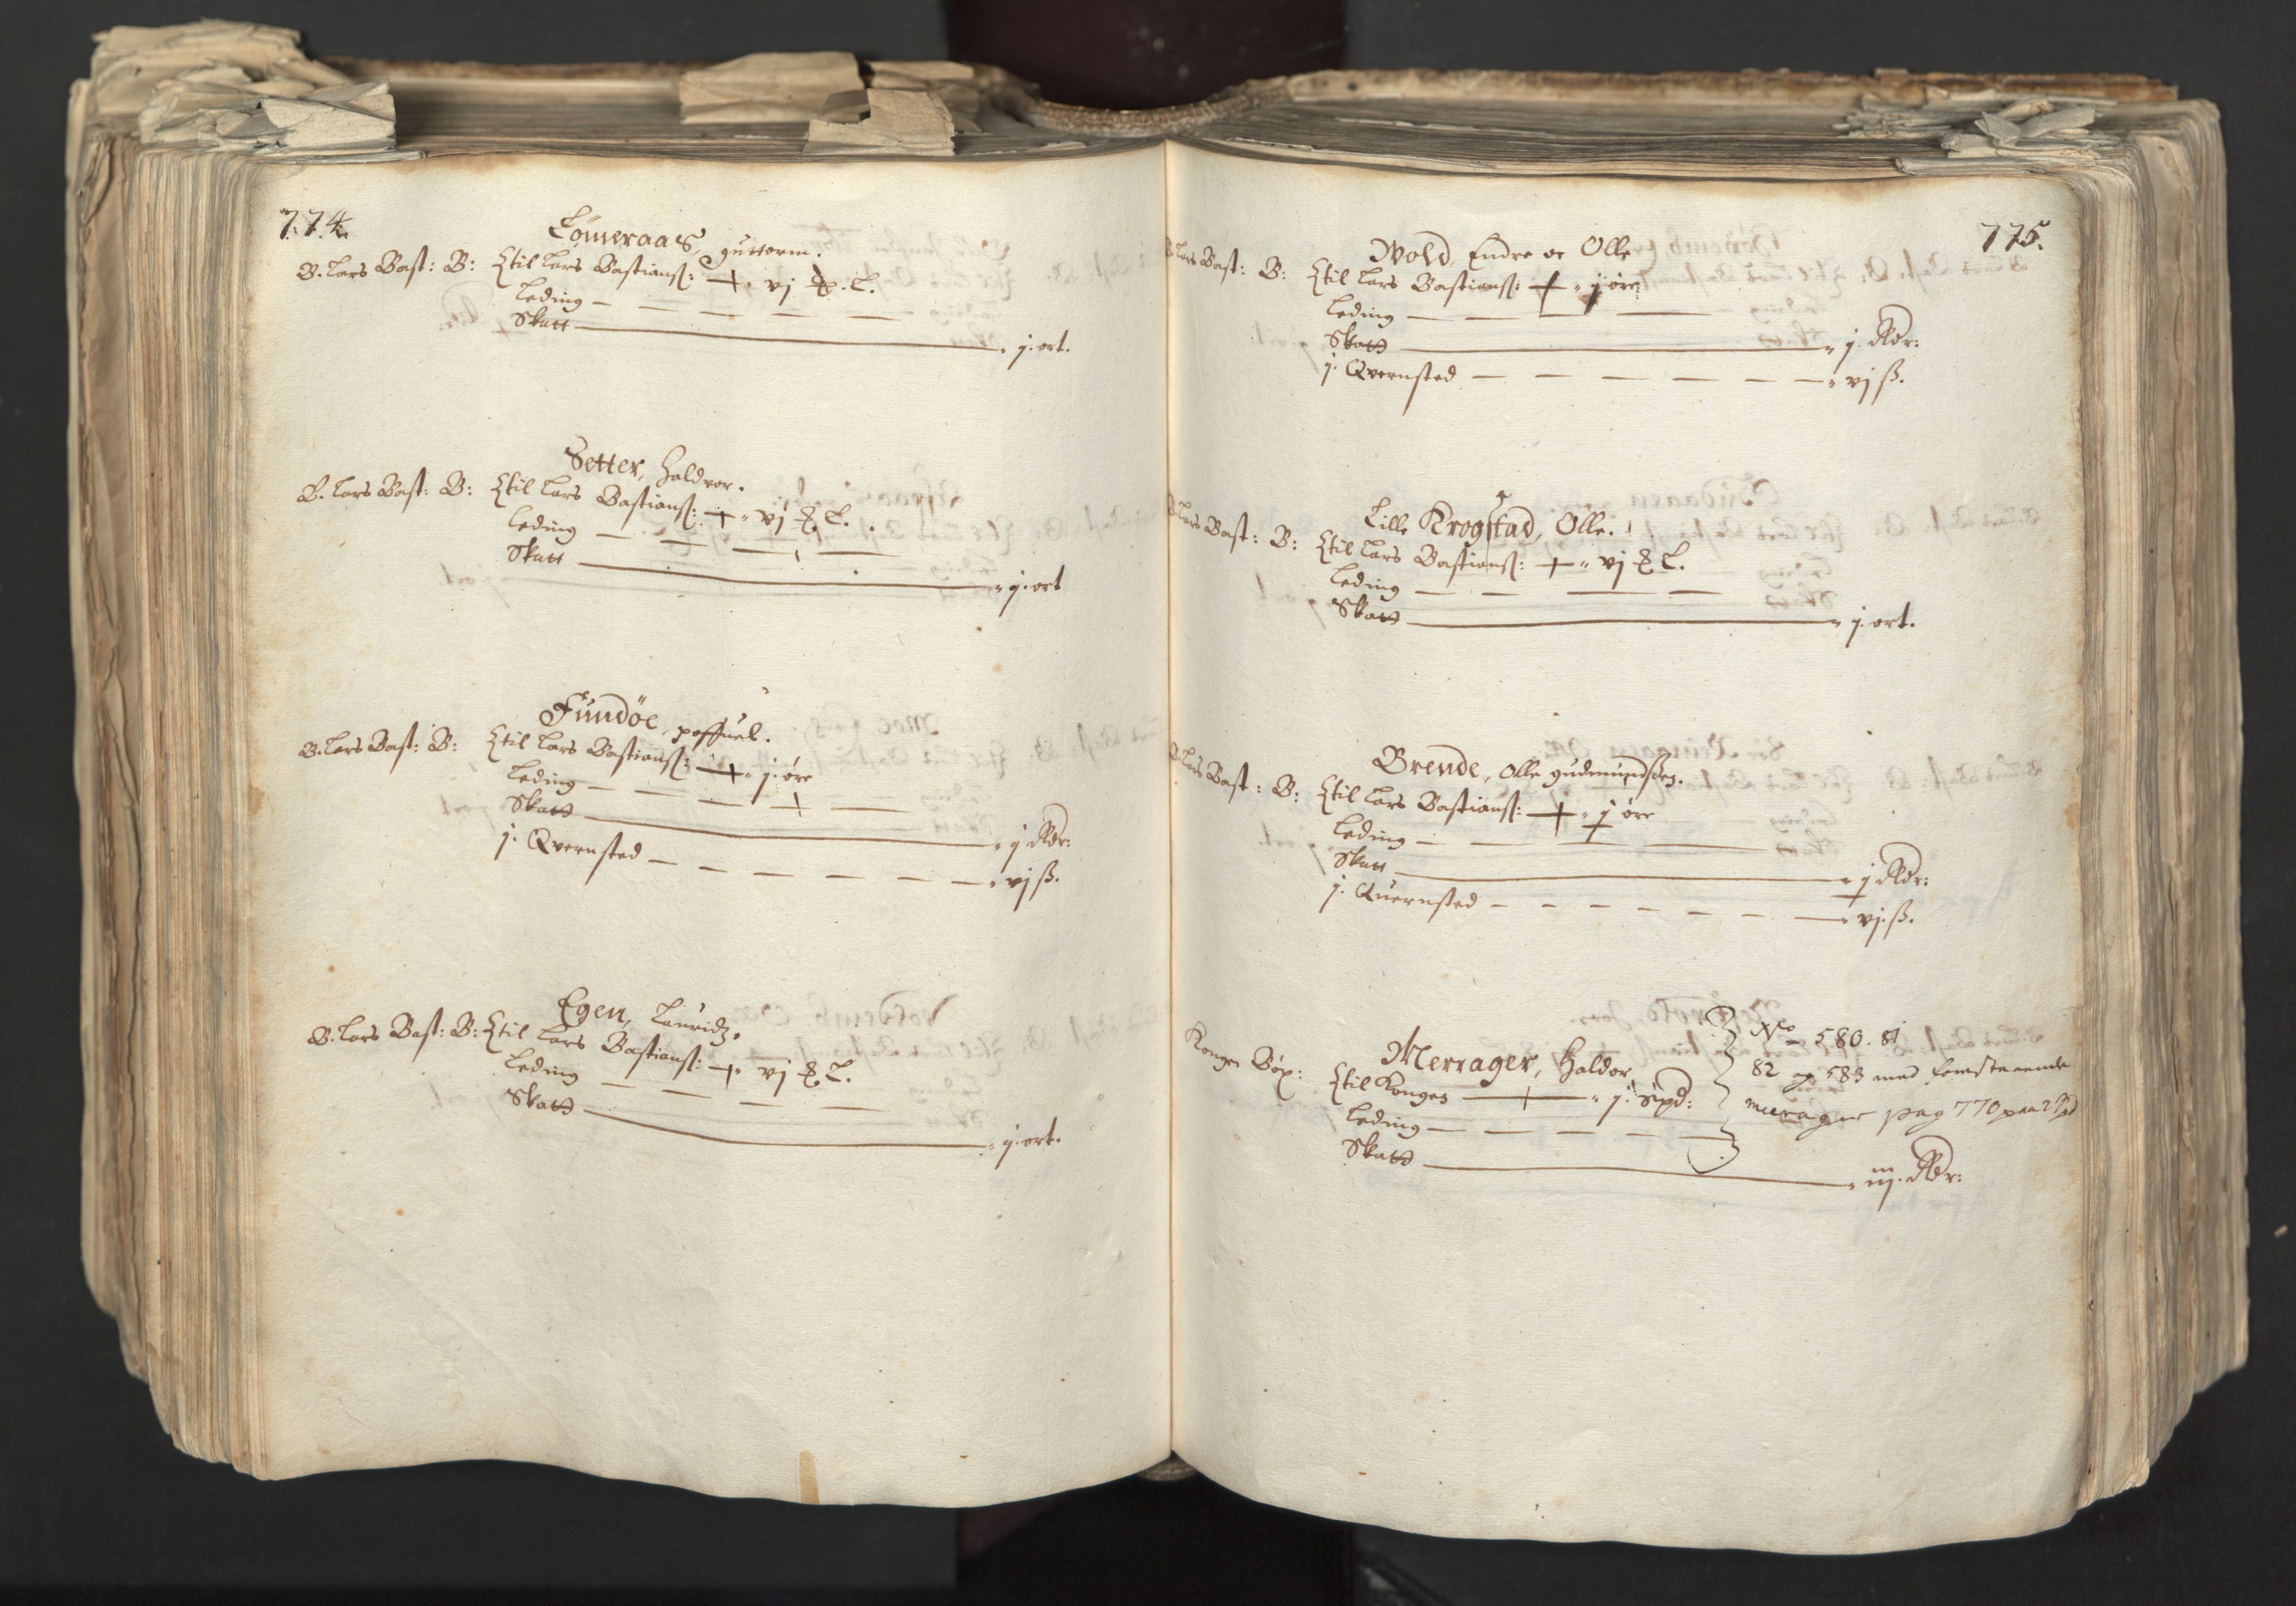 774.
Lømeraas, guttorm.
B. Lars Bast: B: Till Lars Bastianß: + " vj L.
Leding — — — — —
Skatt — " j. ort.
Setter, Haldvor.
B. Lars Bast: B: Till Lars Bastianß: + " vj L.
Leding — — — —
Skatt — " j. ort
Fundøe, poffuel.
B. Lars Bast: B: Till Lars Bastianß: + " j. øre
Leding — — — — —
Skatt — " j Rdr:
j. Qvernsted — — — — — — " vj ß.
Egen, Lauridz.
B. Lars Bast: B: Till Lars Bastianß: + " vj L.
Leding — — — —
Skatt — " j. ort.
775.
Wold, Endre oc Olle
B. Lars Bast: B: Till Lars Bastianß: + " j øre
Leding — — — —
Skatt — " j. Rdr:
j. Qvernsted — — — — — — " vj ß.
Lille Krogstad, Olle.
B. Lars Bast: B: Till Lars Bastianß: + " vj L.
Leding — — — —
Skatt — " j. ort.
Brende, Olle gudmundßen.
B. Lars Bast: B: Till Lars Bastianß: + " j øre
Leding — — — —
Skatt — " j Rdr:
j. Quernsted — — — — — — " vj. ß.
Merrager, Haldor
Konges Bøx: Till Konges + " j. Sipd:
Leding — — — — —
Skatt — " iij. Rdr:
No 580. 81
82 og 583 med forestaaende
meragre pag 770